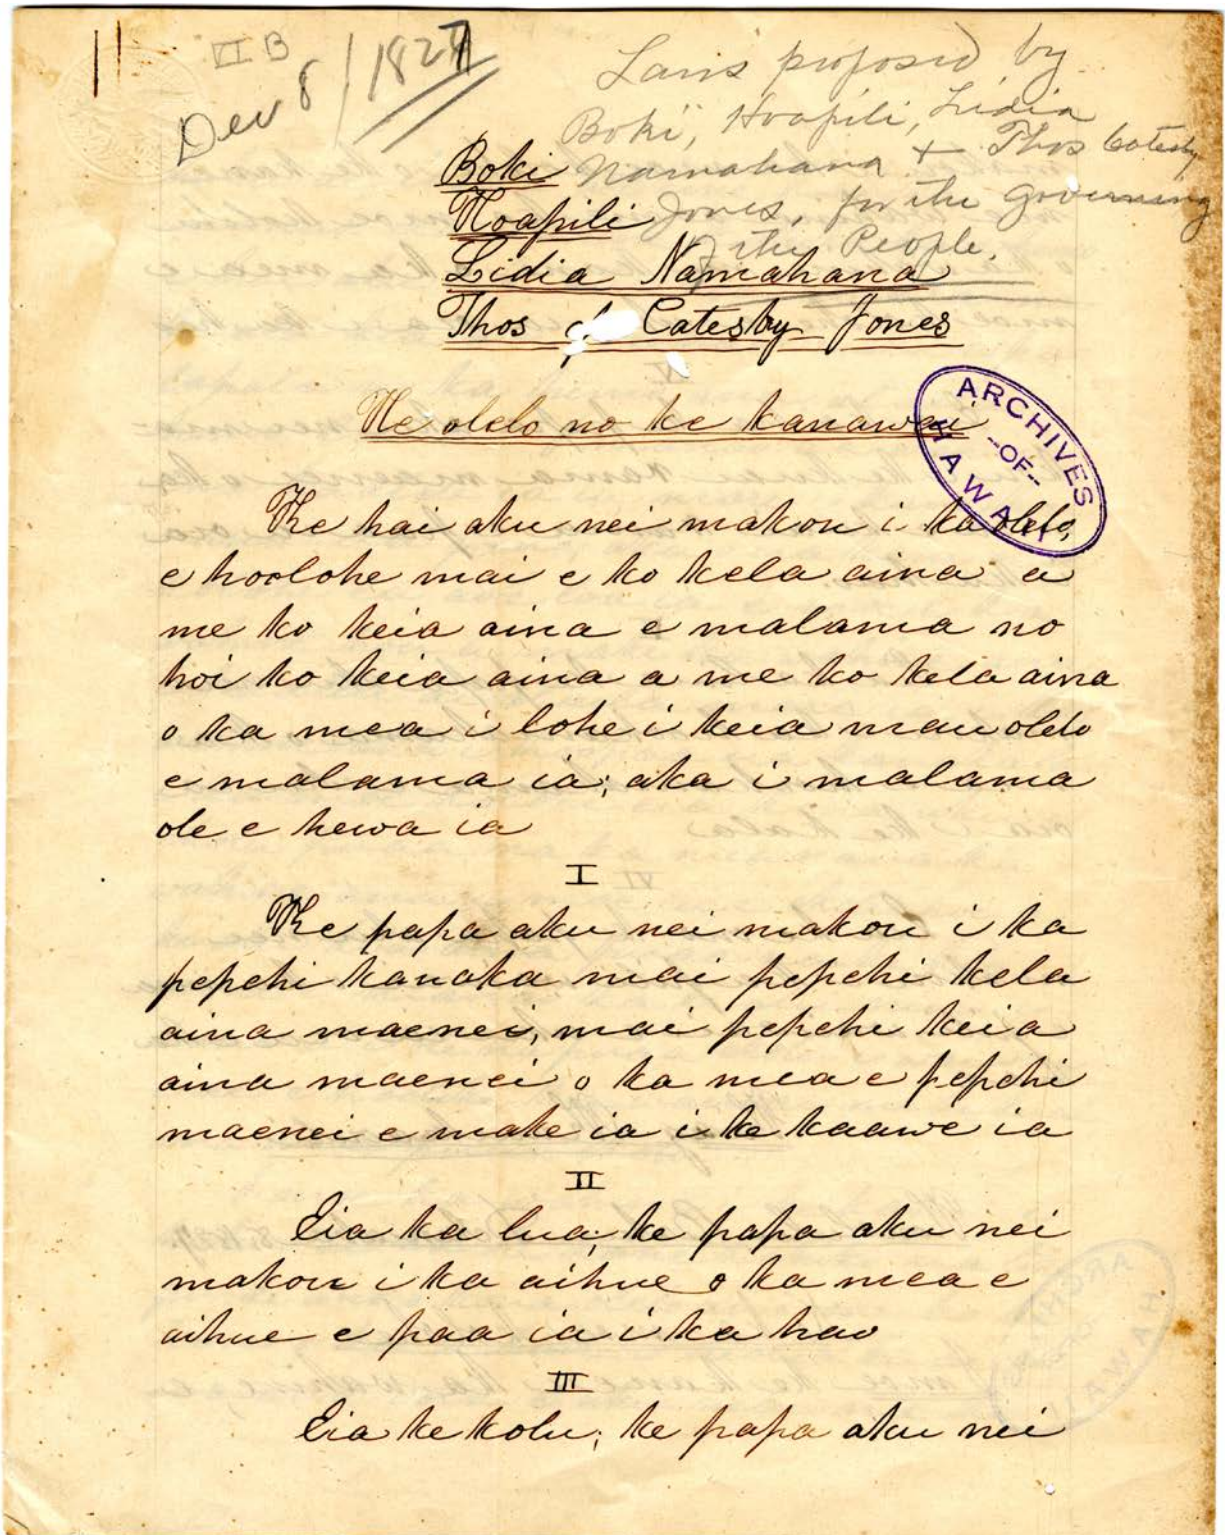 VI B
Dec 8/1827
Laws proposed by
Boki, Hoapili, Lidia
Namahana + Thos Catesby
Jones, for the governing
of the People.
Boki
Hoapili
Lidia Namahana
Thos Catesby Jones
He olelo no ke kanawai
ARCHIVES
--OF--
HAWAII
Ke hai aku nei makou i ka olelo,
e hoolohe mai e ko kela aina a
me ko keia aina e malama no
hoi ko keia aina a me ko kela aina
o ka mea i lohe i keia mau olelo
e malama ia; aka i malama
ole e hewa ia
I
Ke papa aku nei makou i ka
pepehi kanaka mai pepehi kela
aina maenei, mai pepehi keia
aina maenei o ka mea e pepehi
maenei e make ia i ke kaawe ia
II
Eia ka lua; ke papa aku nei
makou i ka aihue o ka mea e
aihue e paa ia i ka hao
III
Eia ke kolu; ke papa aku nei